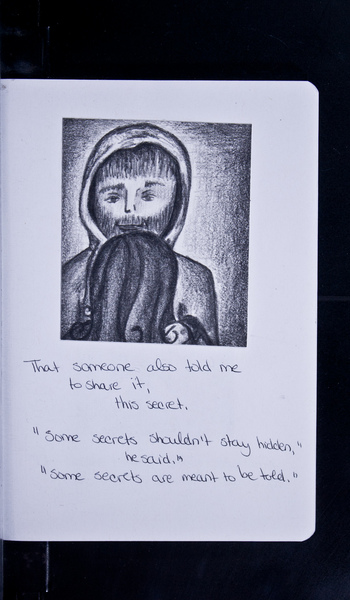 That someone also told me
to share it,
this secret.
"some secrets shouldn't stay hidden,"
he said."
"some secrets are meant to be told."